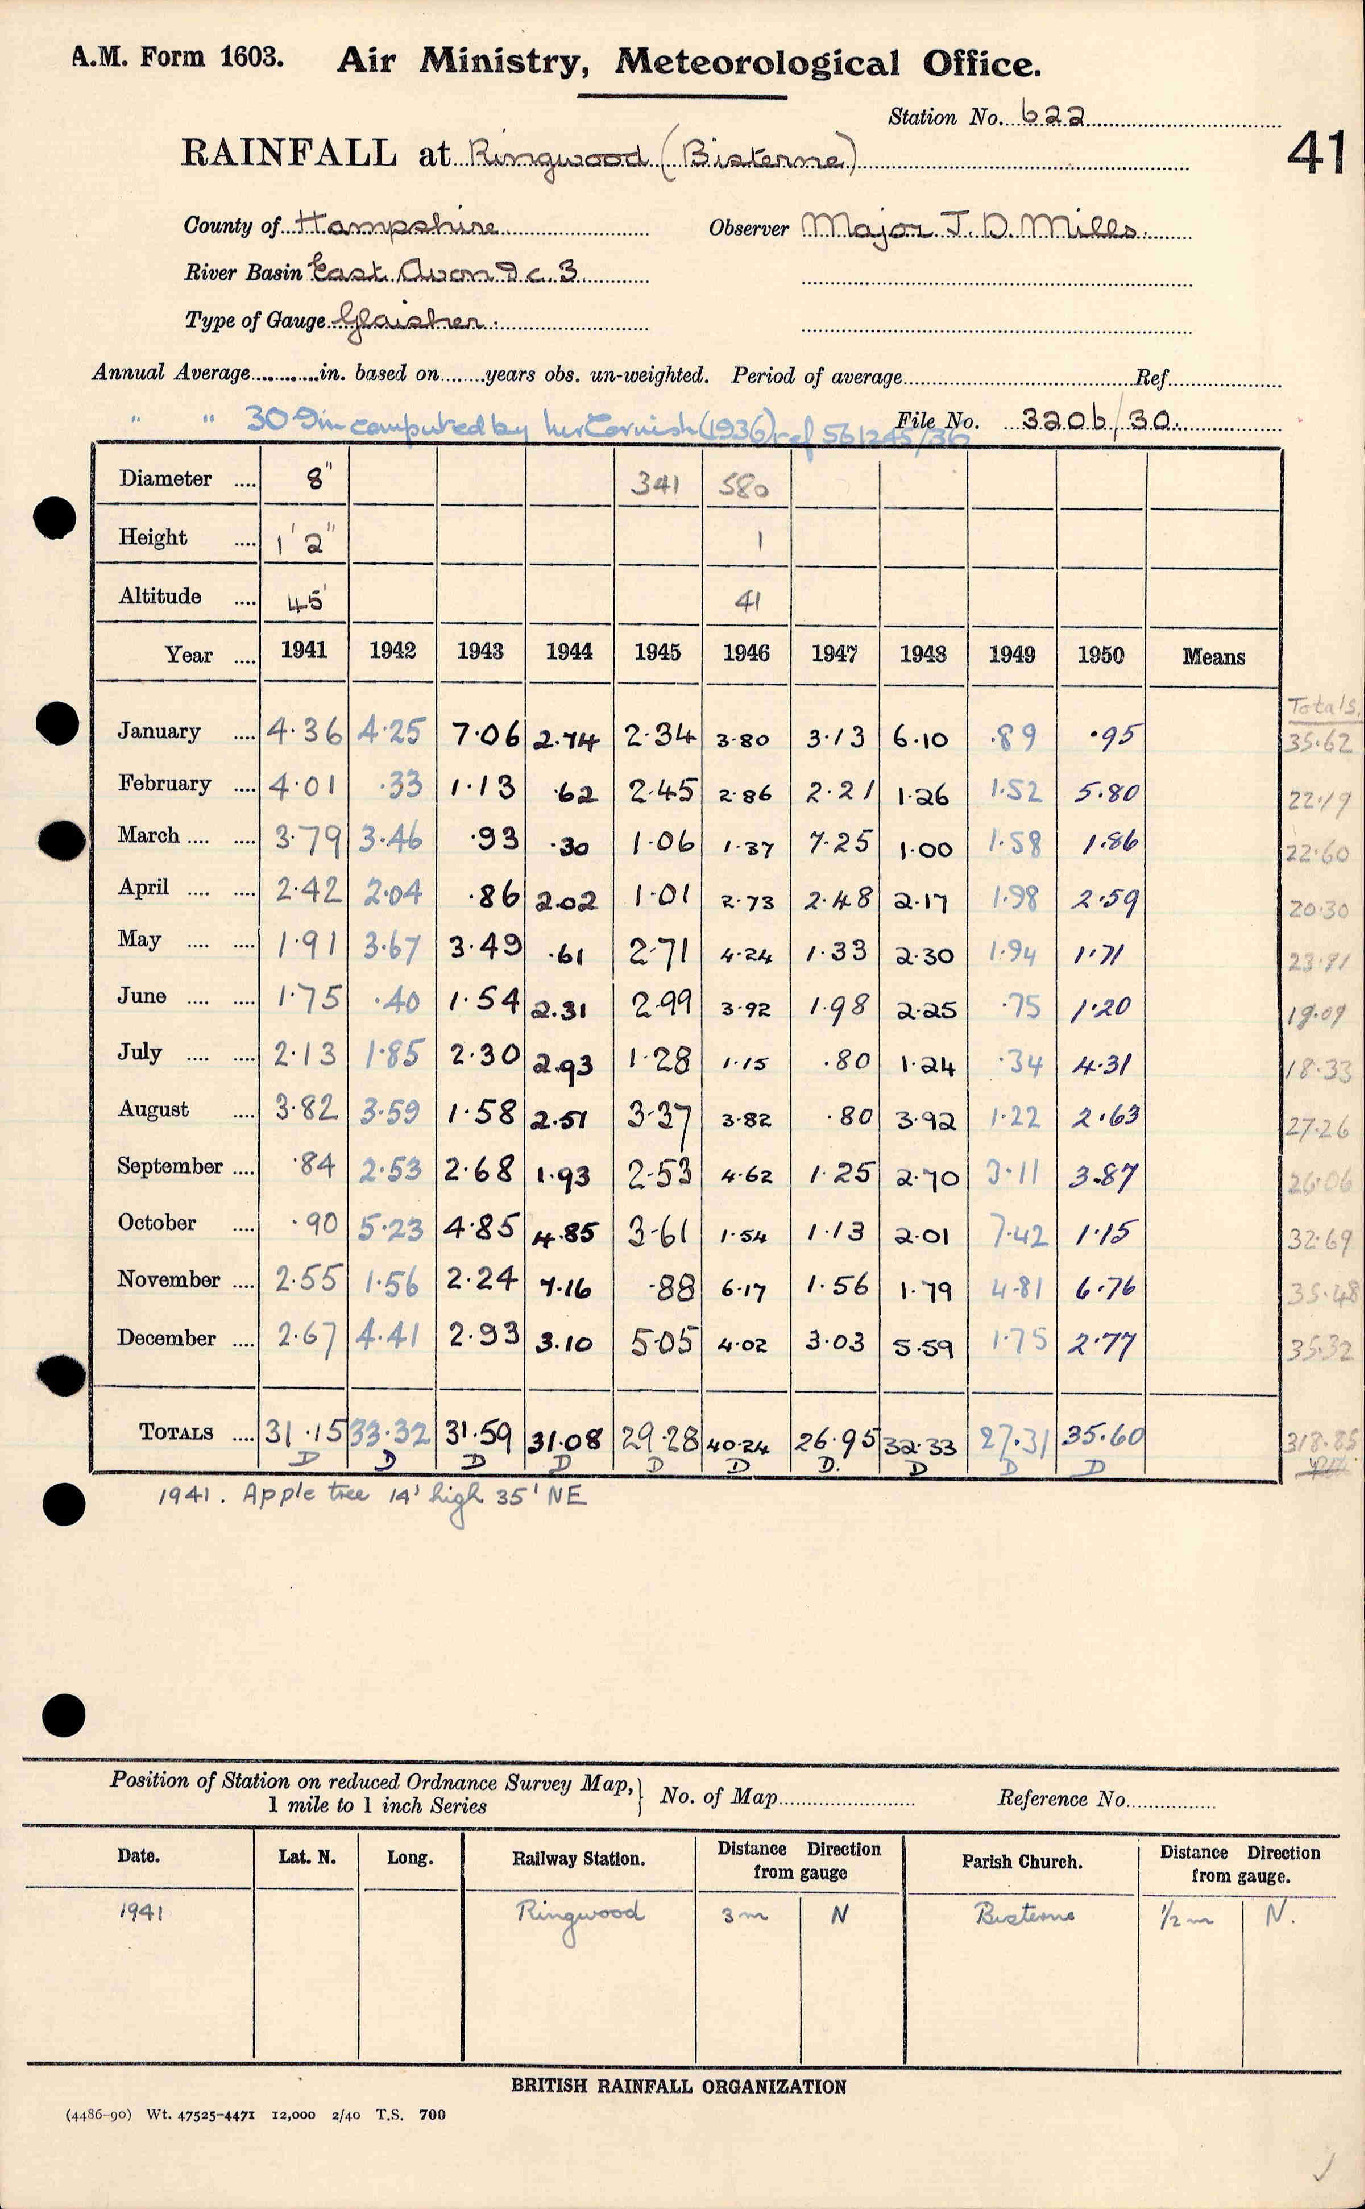 A.M. Form 1603. Air Ministry, Meteorological Office.
Station No. 622
41
RAINFALL at Ringwood (Bisterne)
County of Hampshire Observer Major J. D. Mills.
River Basin East Avon D c. 3
Type of Gauge Glaisher.
Annual Average............in. based on........years obs. un-weighted. Period of average........ Ref........
" " 30·9 in computed by Cornish (1936) ref 561245/36 File No. 3206/30.
Diameter .... 8" 341 580
Height .... 1' 2" 1
Altitude .... 45' 41
Year .... 1941 1942 1943 1944 1945 1946 1947 1948 1949 1950 Means
Totals.
January .... 4·36 4·25 7·06 2.74 2·34 3·80 3·13 6·10 ·89 ·95 35·62
February .... 4·01 ·33 1·13 ·62 2·45 2·86 2·21 1·26 1·52 5·80 22·19
March .... .... 3·79 3·46 ·93 ·30 1·06 1·37 7·25 1·00 1·58 1·86 22·60
April .... .... 2·42 2·04 ·86 2.02 1·01 2·73 2·48 2·17 1·98 2·59 20·30
May .... .... 1·91 3·67 3·49 ·61 2·71 4·24 1·33 2·30 1·94 1·71 23·91
June .... .... 1·75 ·40 1·54 2.31 2·99 3·92 1·98 2·25 ·75 1·20 19·09
July .... .... 2·13 1·85 2·30 2.93 1·28 1·15 ·80 1·24 ·34 4·31 18·33
August .... 3·82 3·59 1·58 2.51 3·37 3·82 ·80 3·92 1·22 2·63 27·26
September .... ·84 2·53 2·68 1.93 2·53 4·62 1·25 2·70 3·11 3·87 26·06
October .... ·90 5·23 4·85 4.85 3·61 1·54 1·13 2·01 7·42 1·15 32·69
November .... 2·55 1·56 2·24 7·16 ·88 6·17 1·56 1·79 4·81 6·76 35·48
December .... 2·67 4·41 2·93 3.10 5·05 4·02 3·03 5·59 1·75 2·77 35·32
TOTALS .... 31·15 33·32 31·59 31.08 29·28 40·24 26·95 32·33 27·31 35·60 318·85
D D D D D D D. D D D
1941. Apple tree 14' high 35' NE
Position of Station on reduced Ordnance Survey Map, 1 mile to 1 inch Series } No. of Map........ Reference No........
Date. Lat. N. Long. Railway Station. Distance Direction from gauge Parish Church. Distance Direction from gauge.
1941 Ringwood 3 m N Bisterne 1/2 m N.
BRITISH RAINFALL ORGANIZATION
(4486-90) Wt. 47525-4471 12,000 2/40 T.S. 700